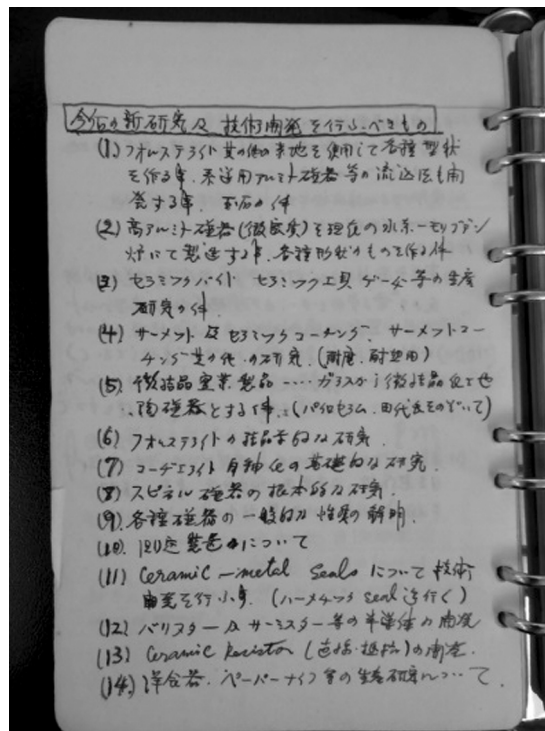 今后の新研究及技術開発を行ふべきもの
(1) フォルステライト其の他の素地を使用して各種型状
を作る事. 又逆用アルミナ磁器等の流込法も開
発する事.の件
(2) 高アルミナ磁器(微密質)を現在の水素-モリブデン
炉にて製造する事. 各種形状のものを作る件
(3) セラミックバイト セラミック工具 ゲーヂ等の生産
研究の件.
(4) サーメント及セラミックコーチング. サーメントコー
チング其の他の研究. (耐磨.用)
(5) 微結晶窯業製品 ---- ガラスから微結晶化せ
陶磁器とする件. (パイロセラム.田代氏そのについて)
(6) フォルステライトの結晶学的な研究.
(7) コーヂェライト 磁化の基礎的な研究.
(8) スピネル磁器の根本的な研究.
(9) 各種磁器の一般的な性質の説明.
(10). 測定装置について
(11) Ceramic-metal Seals について技術
開発を行ふ事. (ハーメチックseal迄行く)
(12) バリスター及サーミスター等の半導体の開発
(13) Ceramic Resistor (抵抗)の開発.
(14) 洋食器. ペーパーナイフ等の生産研究について.